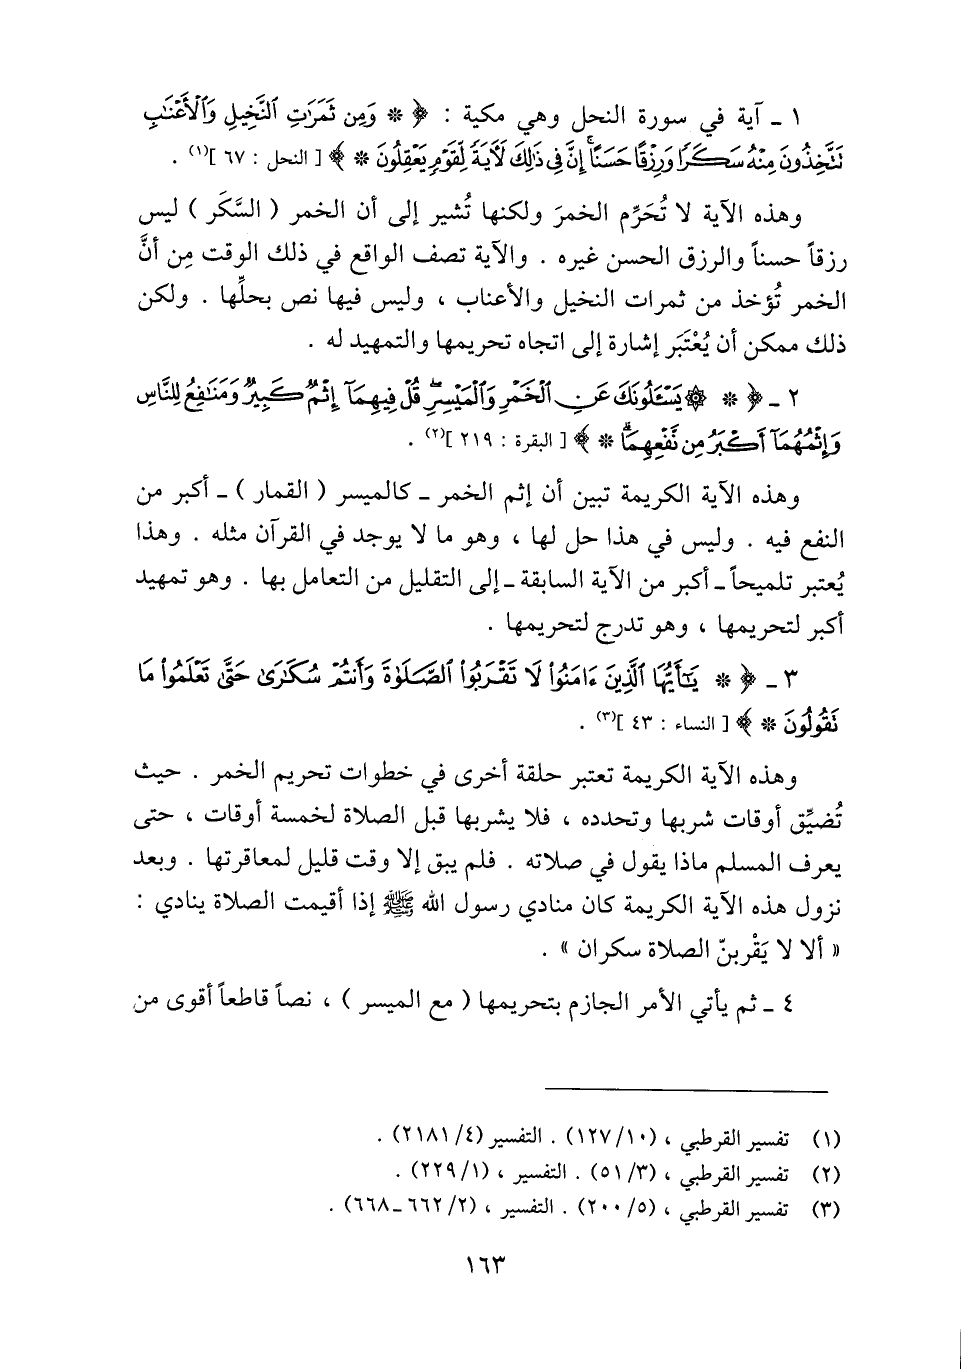 ١ ـ آية في سورة النحل وهي مكية : ﴿ * وَمِن ثَمَرَٰتِ ٱلنَّخِيلِ وَٱلْأَعْنَٰبِ
تَتَّخِذُونَ مِنْهُ سَكَرًا وَرِزْقًا حَسَنًا ۗ إِنَّ فِي ذَٰلِكَ لَآيَةً لِّقَوْمٍ يَعْقِلُونَ * ﴾ [ النحل : ٦٧ ](١) .
وهذه الآية لا تُحَرِّم الخمرَ ولكنها تُشير إلى أن الخمر ( السَّكَر ) ليس
رزقاً حسناً والرزق الحسن غيره . والآية تصف الواقع في ذلك الوقت مِن أنَّ
الخمر تُؤخذ من ثمرات النخيل والأعناب ، وليس فيها نص بحلِّها . ولكن
ذلك ممكن أن يُعْتَبَر إشارة إلى اتجاه تحريمها والتمهيد له .
٢ ـ ﴿ * ۞ يَسْـَٔلُونَكَ عَنِ ٱلْخَمْرِ وَٱلْمَيْسِرِ ۖ قُلْ فِيهِمَآ إِثْمٌ كَبِيرٌ وَمَنَٰفِعُ لِلنَّاسِ
وَإِثْمُهُمَآ أَكْبَرُ مِن نَّفْعِهِمَا ۗ * ﴾ [ البقرة : ٢١٩ ](٢) .
وهذه الآية الكريمة تبين أن إثم الخمر ـ كالميسر ( القمار ) ـ أكبر من
النفع فيه . وليس في هذا حل لها ، وهو ما لا يوجد في القرآن مثله . وهذا
يُعتبر تلميحاً ـ أكبر من الآية السابقة ـ إلى التقليل من التعامل بها . وهو تمهيد
أكبر لتحريمها ، وهو تدرج لتحريمها .
٣ ـ ﴿ * يَٰٓأَيُّهَا ٱلَّذِينَ ءَامَنُوا۟ لَا تَقْرَبُوا۟ ٱلصَّلَوٰةَ وَأَنتُمْ سُكَٰرَىٰ حَتَّىٰ تَعْلَمُوا۟ مَا
تَقُولُونَ * ﴾ [ النساء : ٤٣ ](٣) .
وهذه الآية الكريمة تعتبر حلقة أخرى في خطوات تحريم الخمر . حيث
تُضيِّق أوقات شربها وتحدده ، فلا يشربها قبل الصلاة لخمسة أوقات ، حتى
يعرف المسلم ماذا يقول في صلاته . فلم يبق إلا وقت قليل لمعاقرتها . وبعد
نزول هذه الآية الكريمة كان منادي رسول الله ﷺ إذا أقيمت الصلاة ينادي :
« ألا لا يَقْربنّ الصلاة سكران » .
٤ ـ ثم يأتي الأمر الجازم بتحريمها ( مع الميسر ) ، نصاً قاطعاً أقوى من
(١) تفسير القرطبي ، (١٠/ ١٢٧) . التفسير (٤/ ٢١٨١) .
(٢) تفسير القرطبي ، (٣/ ٥١) . التفسير ، (١/ ٢٢٩) .
(٣) تفسير القرطبي ، (٥/ ٢٠٠) . التفسير ، (٢/ ٦٦٢ ـ ٦٦٨) .
١٦٣